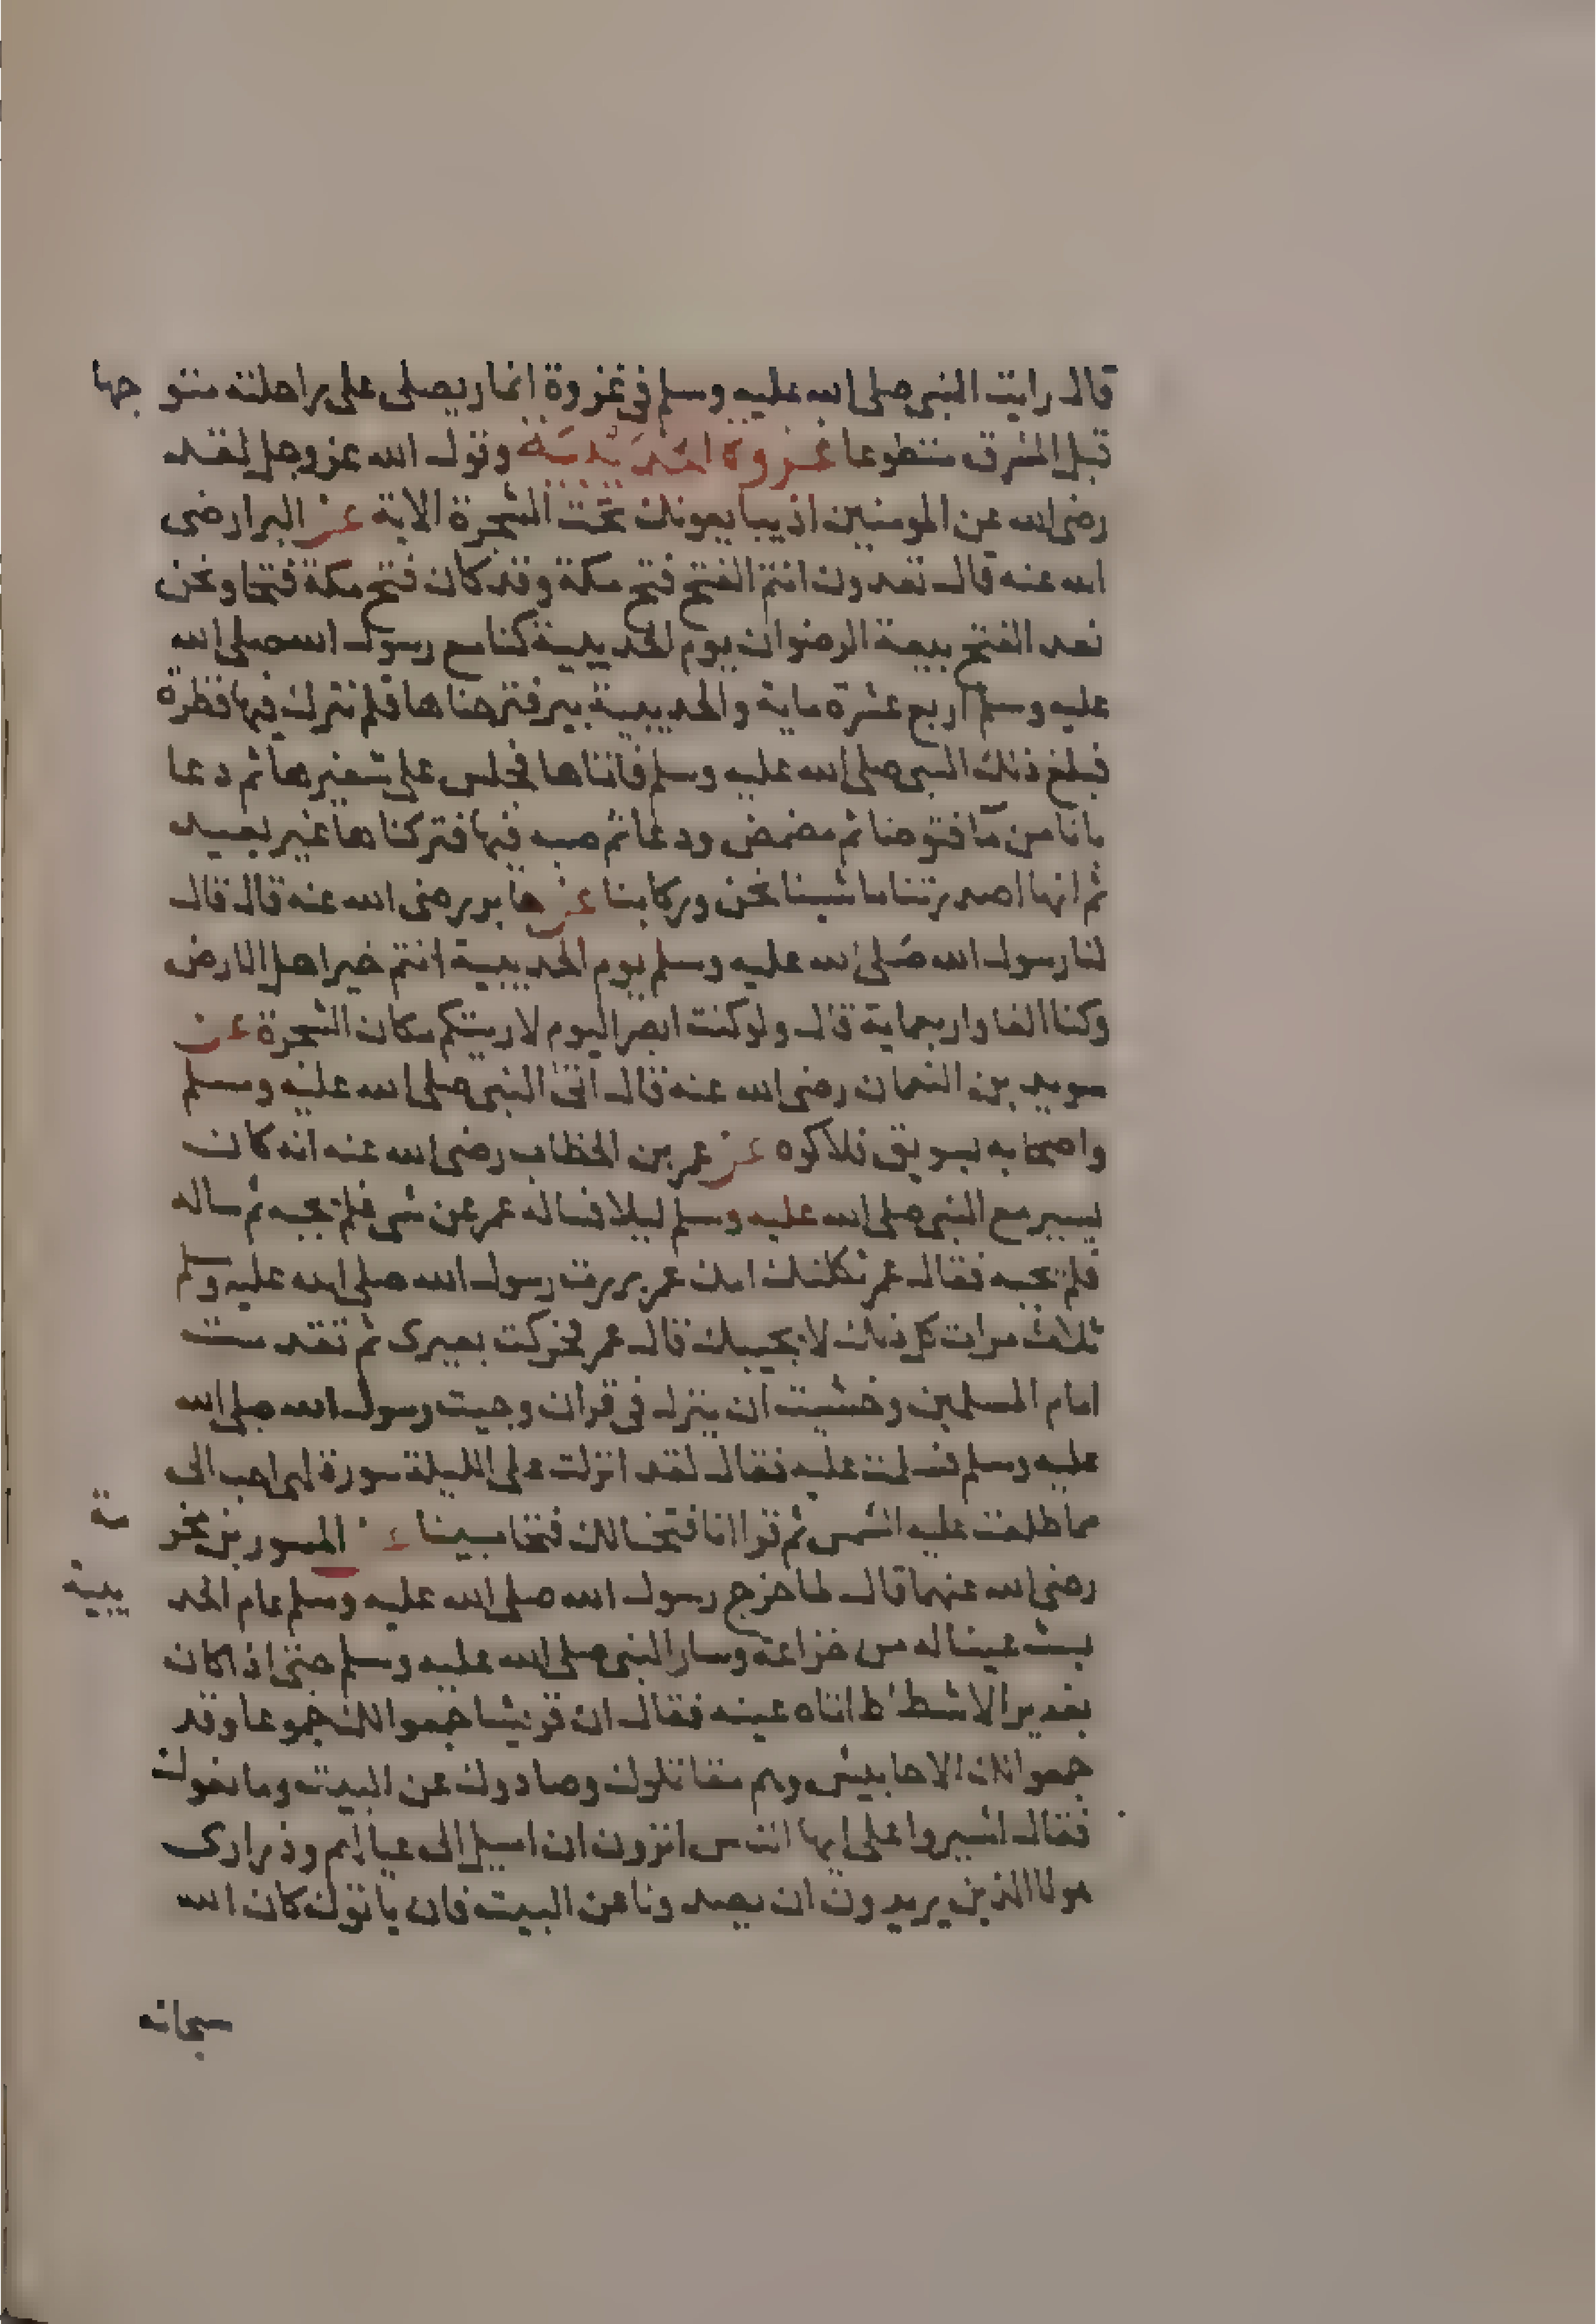 قال رايت النبي صلى الله عليه وسلم في غزوة انمار يصلي على راحلته متوجها
قبل المشرق متطوعا غزوة الحديبية وقول الله عز وجل لقد
رضي الله عن المومنين اذ يبايعونك تحت الشجرة الاية عن البرا رضي
الله عنه قال تعدون انتم الفتح فتح مكة وقد كان فتح مكة فتحا ونحن
نعد الفتح بيعة الرضوان يوم الحديبية كنا مع رسول الله صلى الله
عليه وسلم اربع عشرة ماية والحديبية بير فنزحناها فلم نترك فيها قطرة
فبلغ ذلك النبي صلى الله عليه وسلم فاتاها فجلس على شفيرها ثم دعا
باناء من ما فتوضا ثم مضمض ودعا ثم صبه فيها فتركناها غير بعيد
ثم انها اصدرتنا ما شينا نحن وركابنا عن جابر رضي الله عنه قال قال
لنا رسول الله صلى الله عليه وسلم يوم الحديبية انتم خير اهل الارض
وكنا الفا واربعماية قال ولو كنت ابصر اليوم لاريتكم مكان الشجرة عن
سويد بن النعمان رضي الله عنه قال اتى النبي صلى الله عليه وسلم
واصحابه بسويق فلاكوه عن عمر بن الخطاب رضي الله عنه انه كان
يسير مع النبي صلى الله عليه وسلم ليلا فساله عمر عن شي فلم يجبه ثم ساله
فلم يجبه فقال عمر ثكلتك امك عمر بررت رسول الله صلى الله عليه وسلم
ثلاث مرات كل ذلك لا يجيبك قال عمر فحركت بعيري ثم تقدمت
امام المسلمين وخشيت ان ينزل في قران وجيت رسول الله صلى الله
عليه وسلم فسلمت عليه فقال لقد انزلت علي الليلة سورة لهي احب الي
مما طلعت عليه الشمس ثم قرا انا فتحنا لك فتحا مبينا عن المسور بن مخرمة
رضي الله عنهما قال لما خرج رسول الله صلى الله عليه وسلم عام الحديبية
بعث عينا له من خزاعة وسار النبي صلى الله عليه وسلم حتى اذا كان
بغدير الاشطاط اتاه عينه فقال ان قريشا جمعوا لك جموعا وقد
جمعوا لك الاحابيش وهم مقاتلوك وصادوك عن البيت ومانعوك
فقال اشيروا علي ايها الناس اترون ان اميل الى عيالهم وذراري
هولا الذين يريدون ان يصدونا عن البيت فان ياتونا كان الله
سبحانه